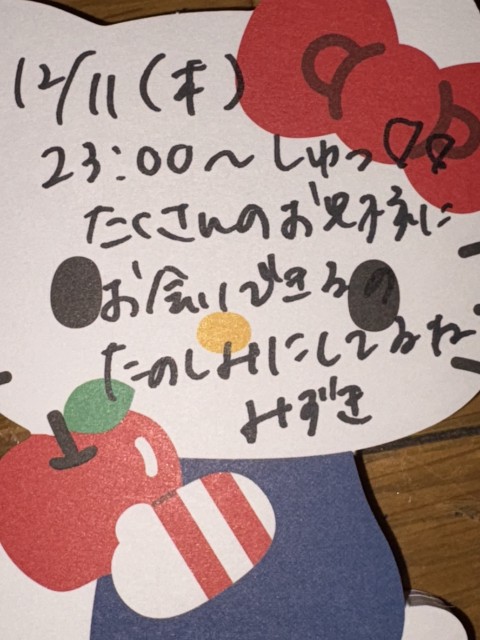 12/11(木)
23:00〜しゅっ♡♡
たくさんのお兄様に
お会いできるの
たのしみにしてるね
みずき